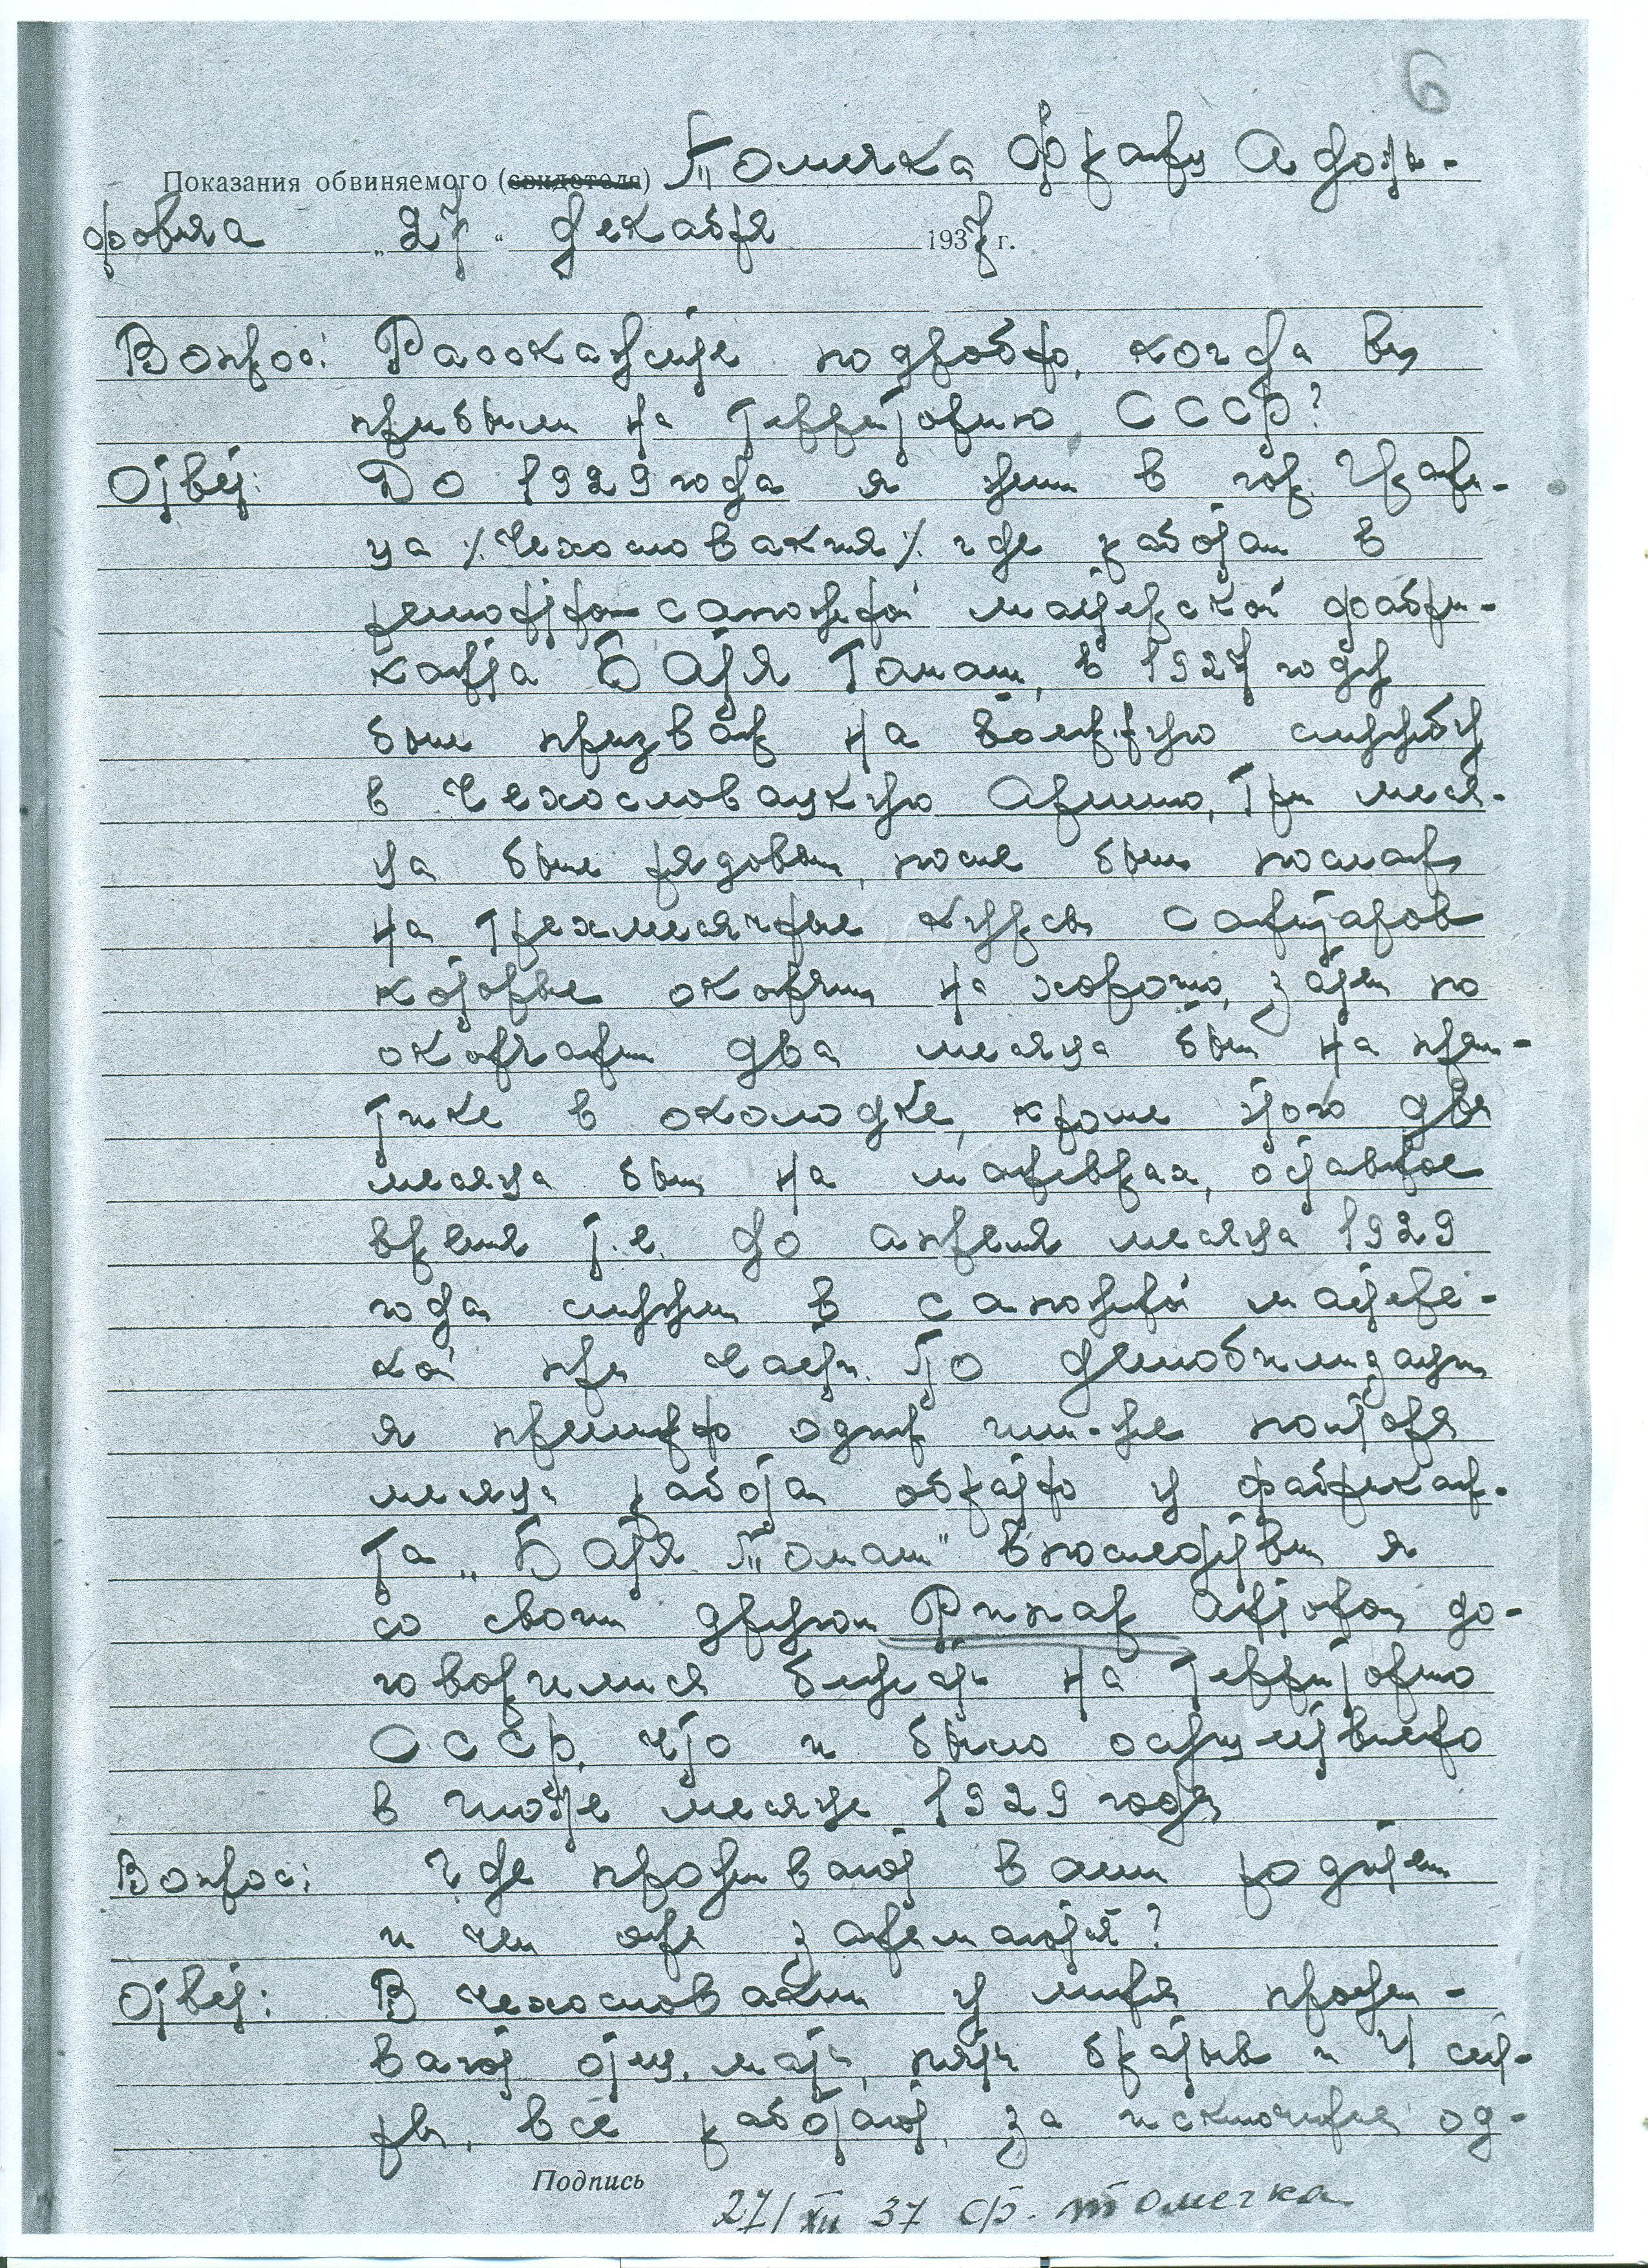 6
Показания обвиняемого (свидетеля) Томечка Франц Адоль-
фовича „27“ декабря 1937 г.
Вопрос: Расскажите подробно, когда Вы
прибыли на территорию СССР?
Ответ: До 1929 года я жил в гор.
ца /Чехословакия/ где работал в
ремонтно-сапожной мастерской фабри-
канта Батя Томаш, в 1927 году
был призван на военную службу
в Чехословацкую Армию, Три меся-
ца был рядовым, после был послан
на трехмесячные курсы санитаров
которые окончил на хорошо, затем по
окончании два месяца был на прак-
тике в околодке, кроме этого два
месяца был на маневрах, остальное
время т.е. до апреля месяца 1929
года служил в сапожной мастерс-
кой при части. По демобилизации
я примерно один или-же полтора
месяца работал обратно у фабрикан-
та „Батя Томаш“ впоследствии я
со своим другом Рипар Антоном, до-
говорились бежать на территорию
СССР, что и было осуществлено
в июле месяце 1929 года
Вопрос: Где проживают ваши родители
и чем они занимаются?
Ответ: В Чехословакии у меня прожи-
вают отец, мать, пять братьев и 4 сест-
ры, все работают, за исключением од-
Подпись
27/XII 37 Ф. Томечка